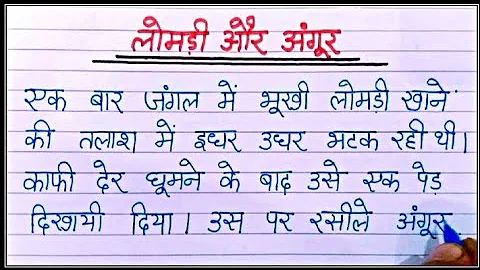 लोमड़ी और अंगूर
एक बार जंगल में भूखी लोमड़ी खाने
की तलाश में इधर उधर भटक रही थी।
काफी देर घूमने के बाद उसे एक पेड़
दिखायी दिया। उस पर रसीले अंगूर